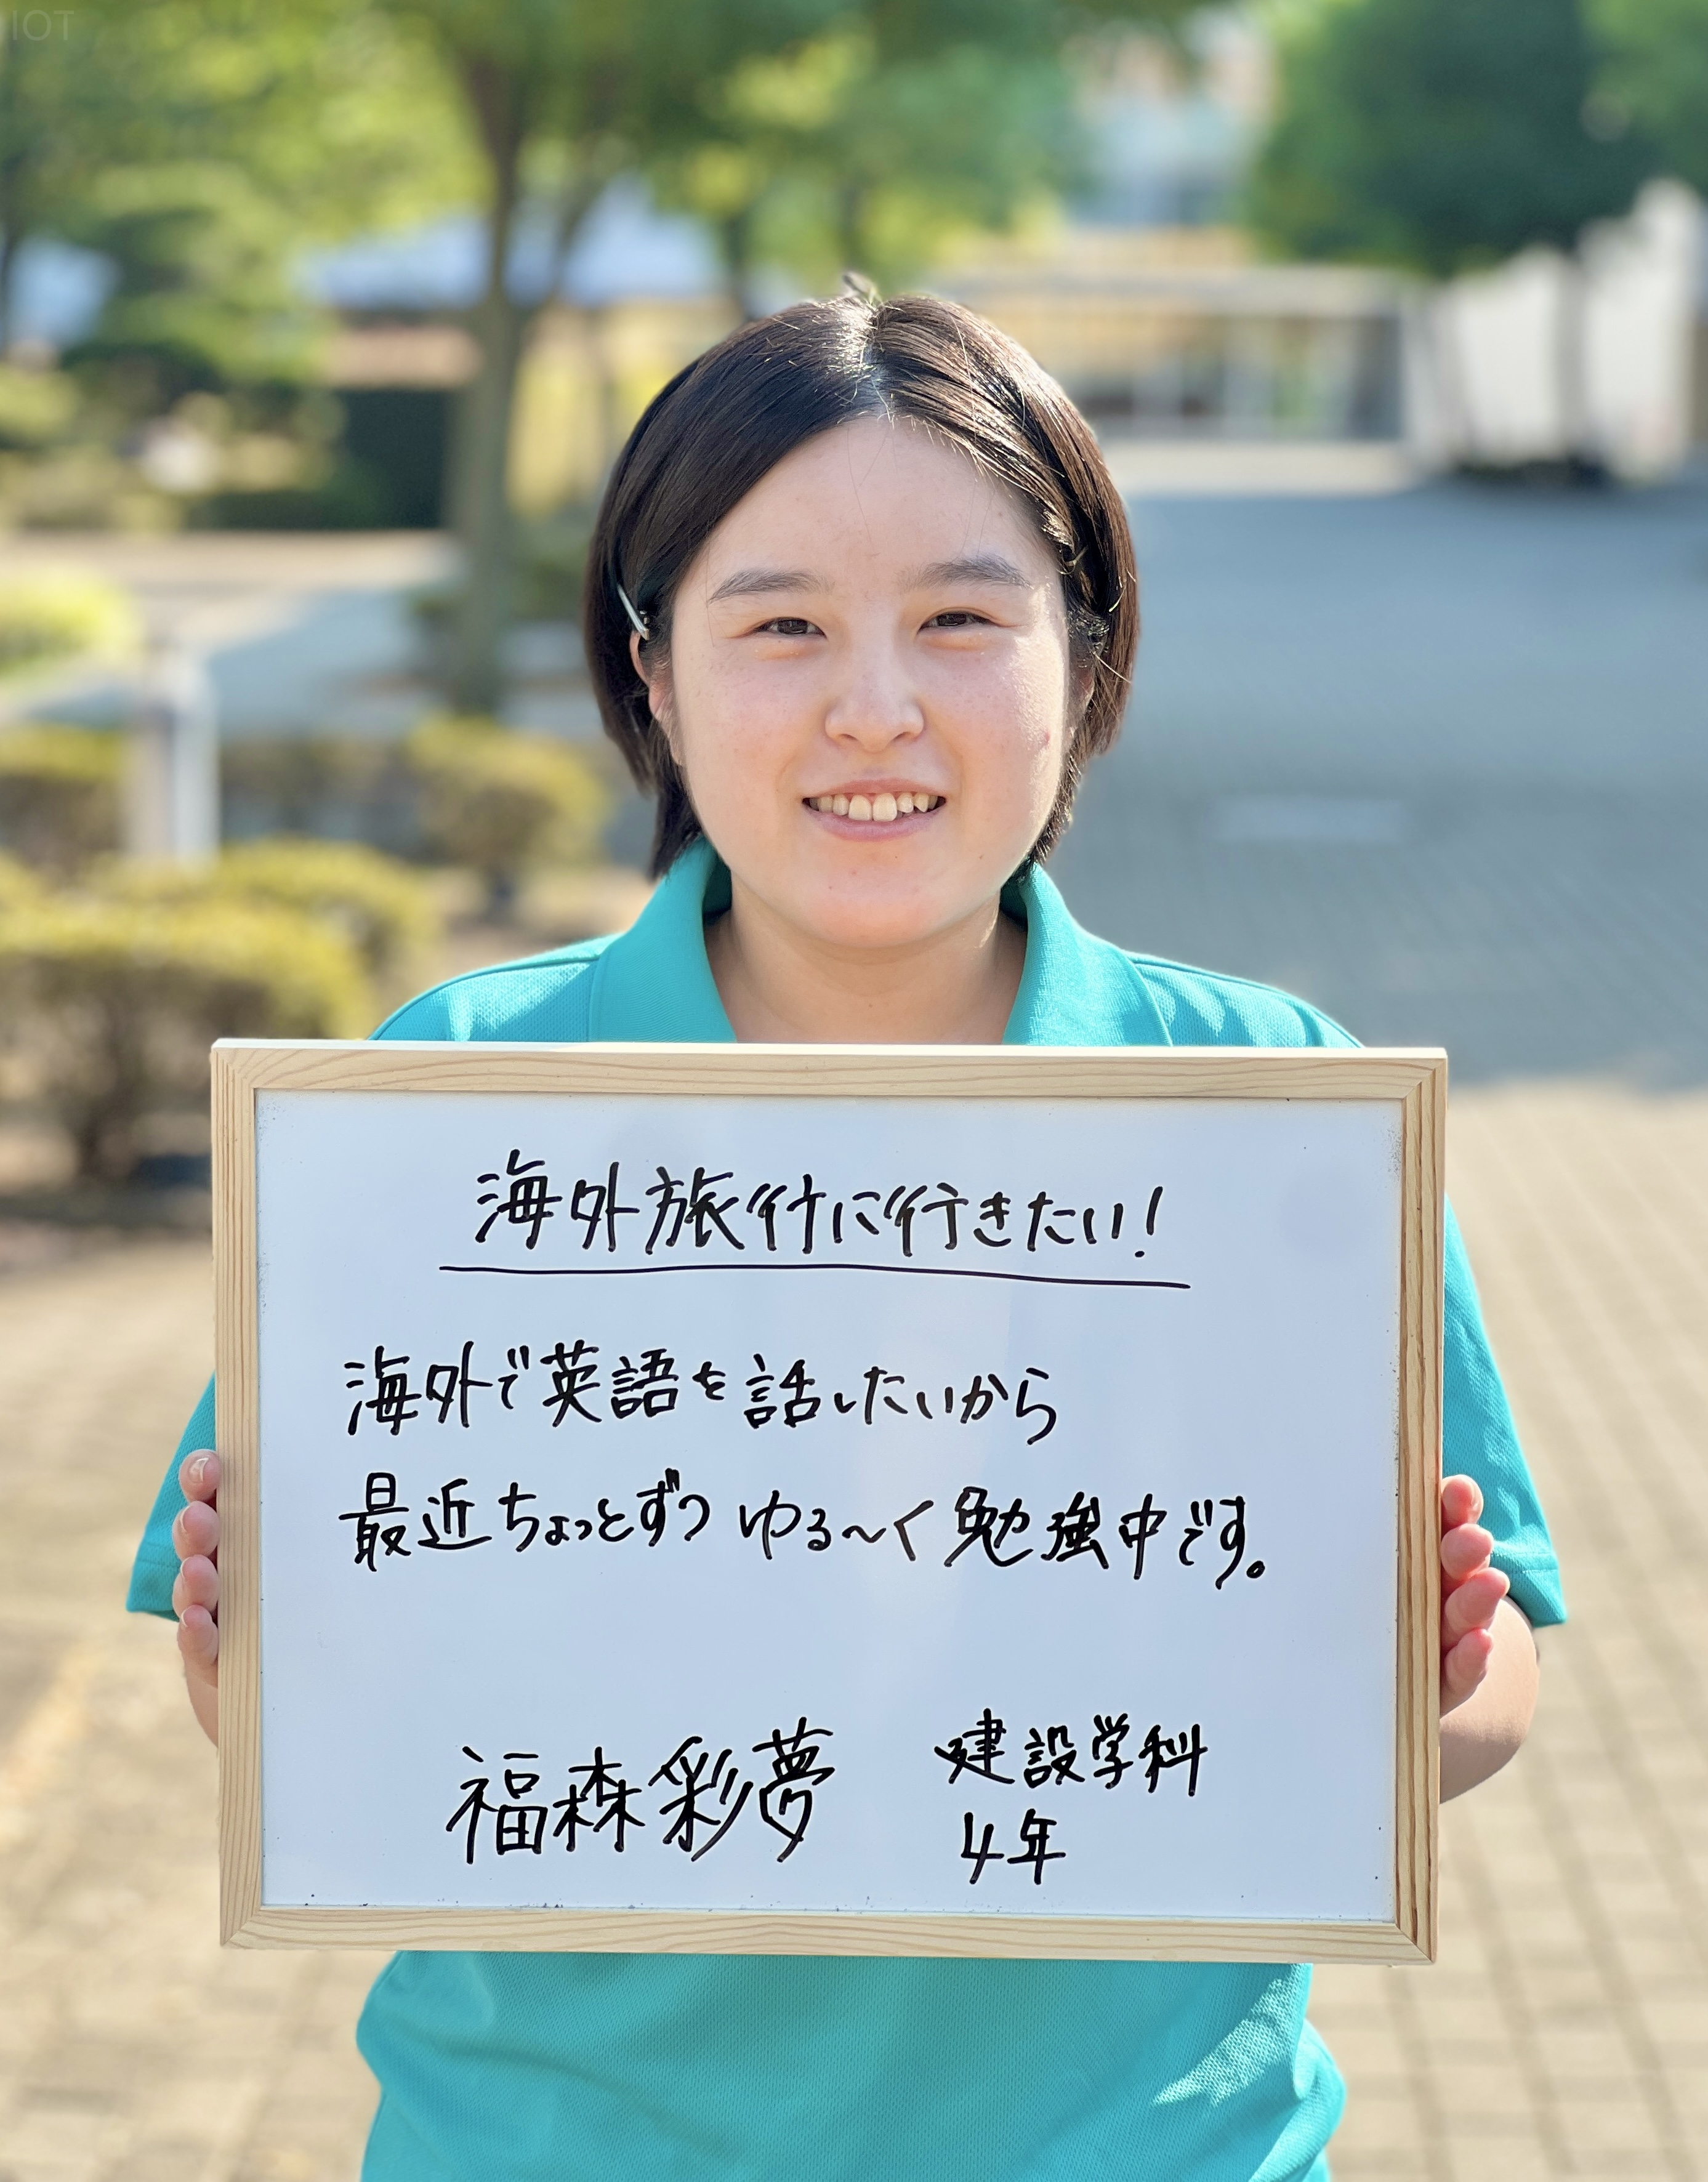 IOT
海外旅行に行きたい!
海外で英語を話したいから
最近ちょっとずつ ゆる～く勉強中です。
福森彩夢
建設学科
4年